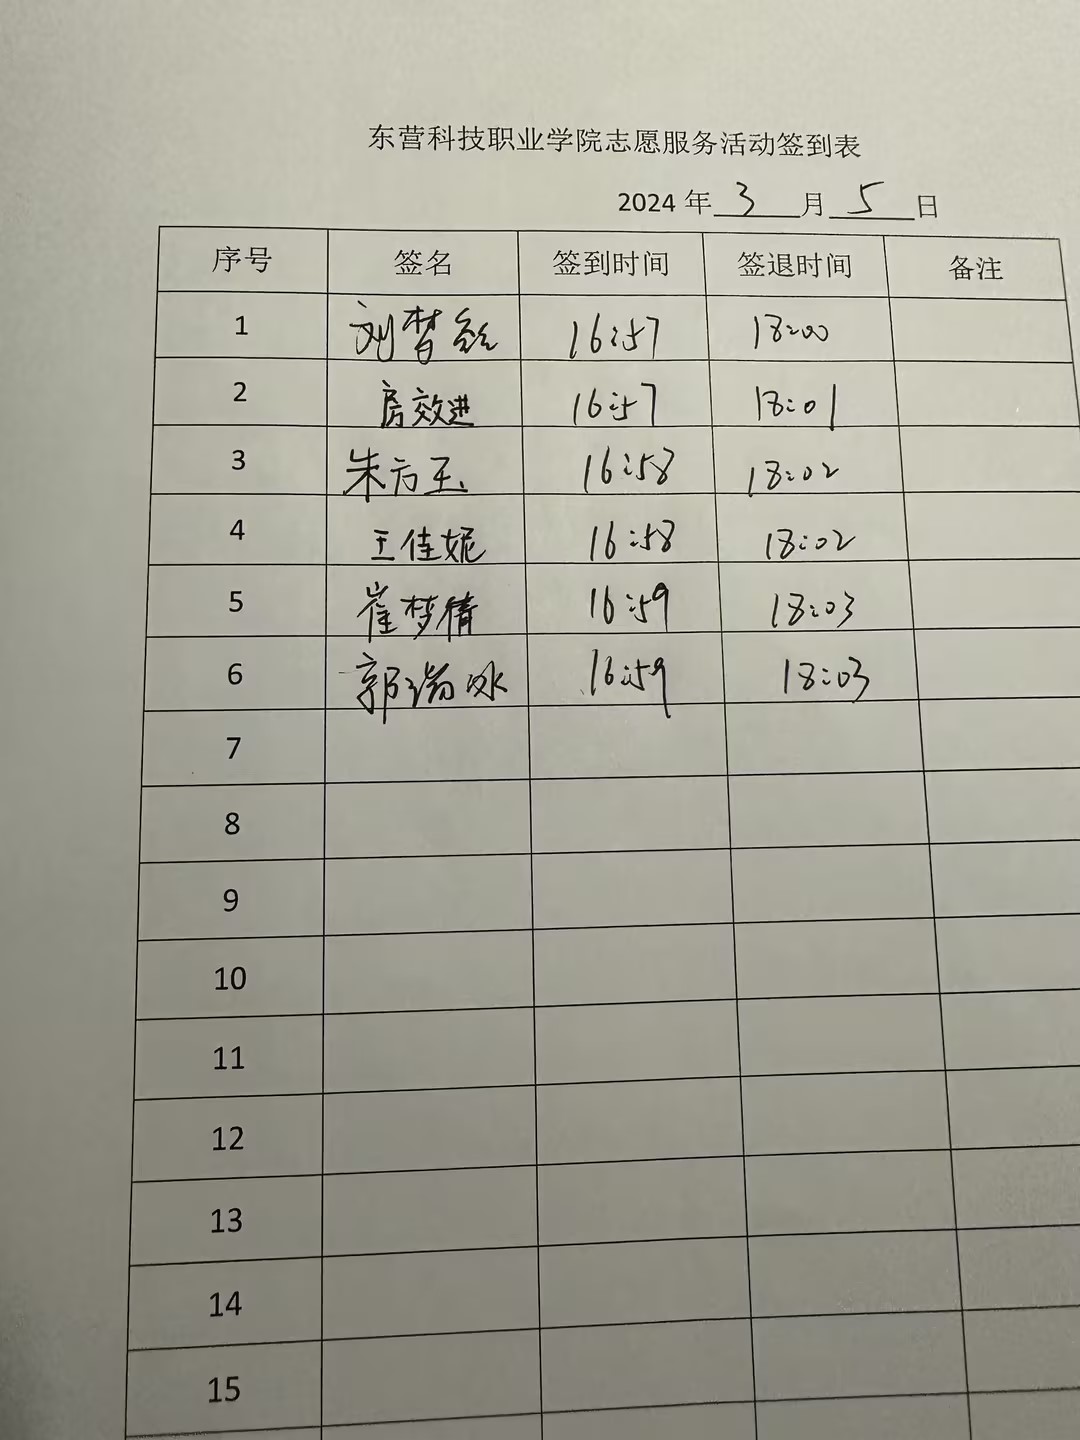 东营科技职业学院志愿服务活动签到表
2024 年 3 月 5 日
序号 签名 签到时间 签退时间 备注
1 刘梦 16:57 18:00
2 房效进 16:57 18:01
3 朱方玉 16:58 18:02
4 王佳妮 16:58 18:02
5 崔梦倩 16:59 18:03
6 郭瑞冰 16:59 18:03
7
8
9
10
11
12
13
14
15